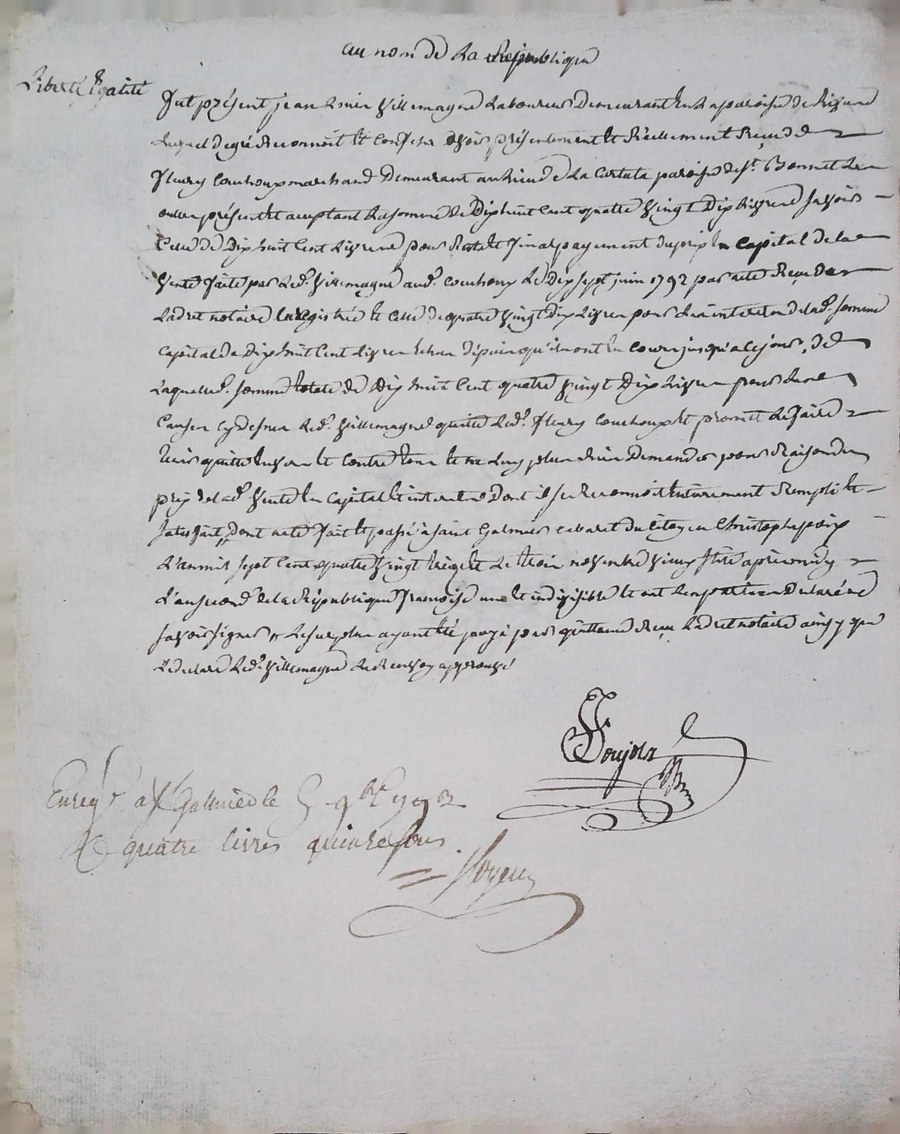 au nom de La République
Liberté Egalité
fut présent jean Villemagne Laboureur Demeurant en La paroisse de
Lequel de gré Reconnoit et Confesse avoir présentement et Réellement Reçu de
fleury Couhoux marchand Demeurant au lieu de La paroisse de St. Bonnet Les
oules présent et acceptant La somme de Dix huit Cent quatre Vingt Dix Livres Savoir
Celle de Dix huit Cent Livres pour Reste et final payement du prix en Capital de la
Vente faite par Led. Villemagne aud. Couhoux Le Dix sept juin 1792 par acte Reçu
Ledit notaire Enregistré et Celle de quatre Vingt Dix Livres pour interets de lad. somme
Capital de Dix huit Cent Livres depuis qu'ils ont eu Cours jusqu'a Ce jour, de
Laquelle somme totale de Dix huit Cent quatre Vingt Dix Livres pour Les
Causes cy dessus Led. Villemagne quitte Led. fleury Couhoux et promet Le faire
tenir quitte Envers et Contre tous et ne Luy plus Rien Demander pour Raison du
prix de lad. Vente En Capital et interets Dont il se Reconnoit Entierement Rempli et
Satisfait, Dont acte fait et passé à saint Galmier cabaret du Citoyen Christophe
L'an mil sept Cent quatre Vingt treize et Le trois novembre Vieux stile apres midy
L'an second de la République françoise une et indivisible et ont Les parties Declaré ne
Savoir signer Le surplus ayant été payé par quittance Reçue Ledit notaire ainsy que
L'a declaré Led. Villemagne Le Renvoy approuvé
Enregé a St Galmier le 5 9bre 1793
R quatre livres quinze sous.